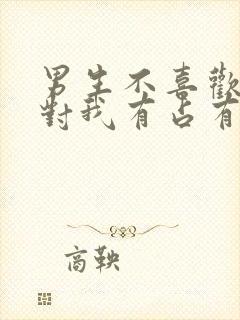 男生不喜歡
對我有占有
商鞅